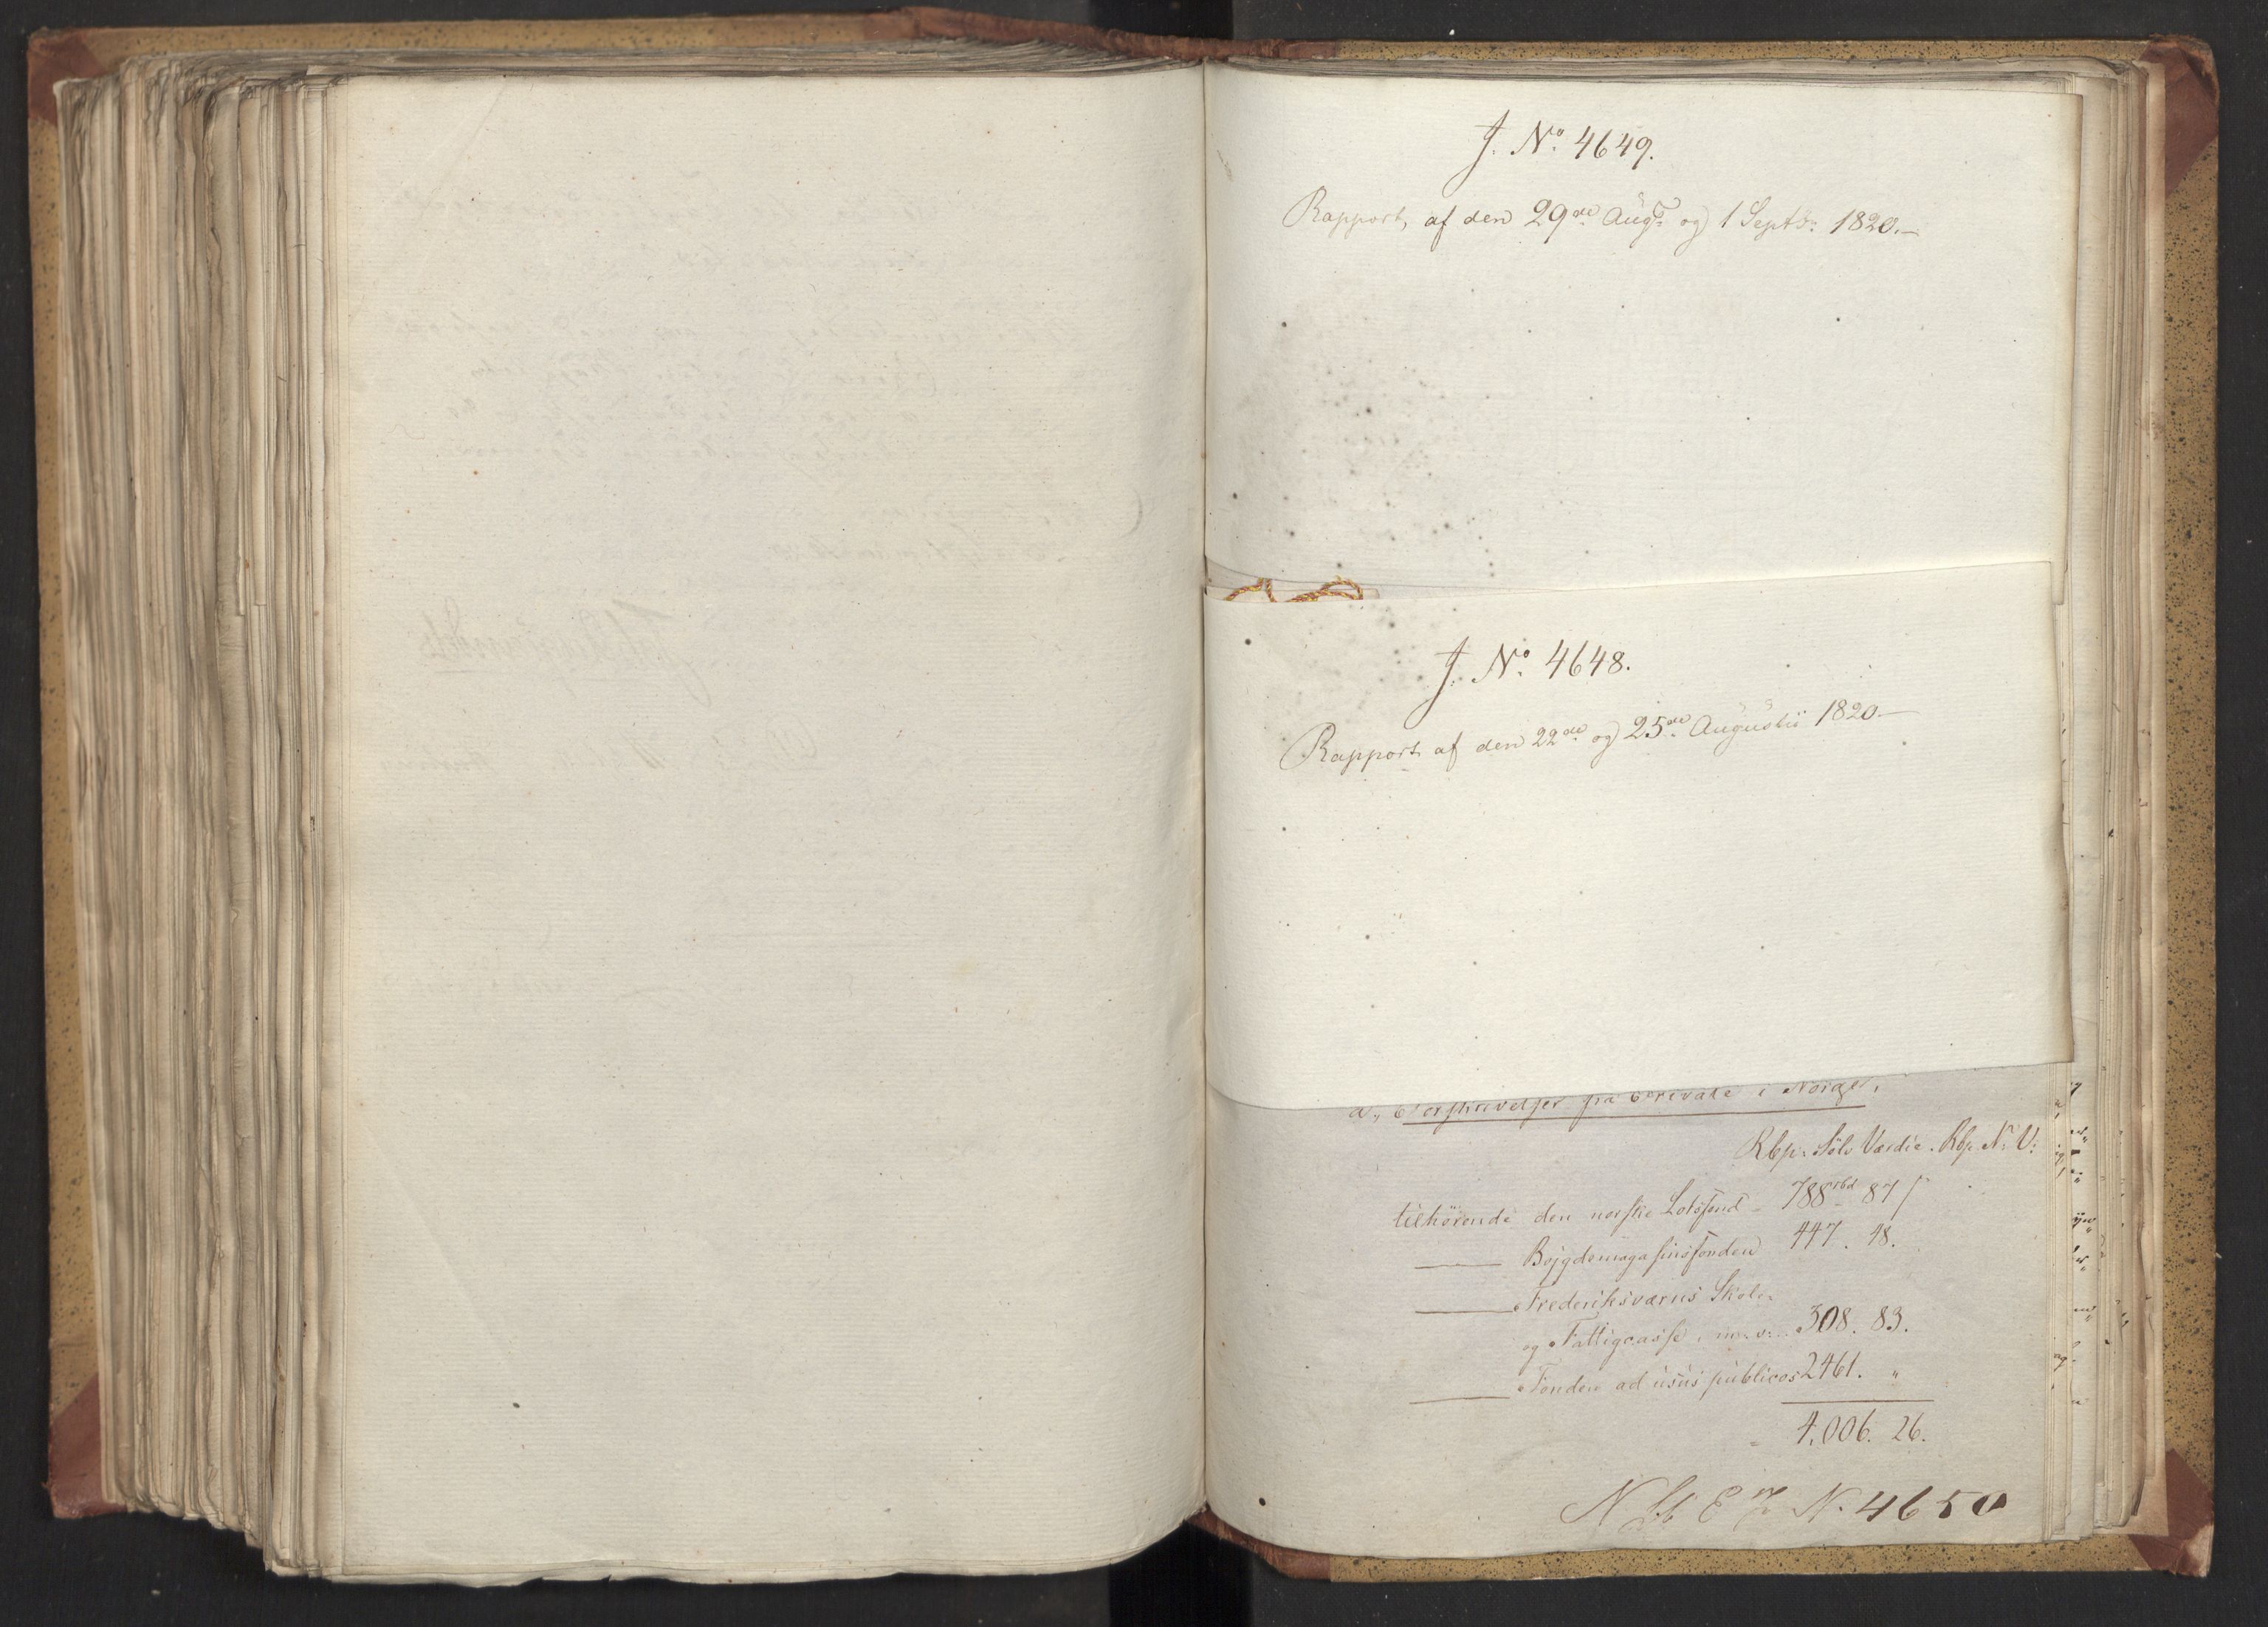 J. No. 4649.
Rapport, af den 29de Augt og 1 Septbr: 1820.—
J. No. 4648.
Rapport af den 22de og 25de Augustii 1820.—
a., Forskrivelser fra Private i Norge.
Rbp: Sölv Værdie. Rbp. N: V:
tilhörende den norske Lotsfond - 788rbd 87 s
—— Bygdemagasinsfonden 447. 48.
—— Frederiksværns Skole-
og Fattigcasse, m. v. - 308. 83.
—— Fonden ad usus publicos 2461. "
4,006. 26.
N. 4650